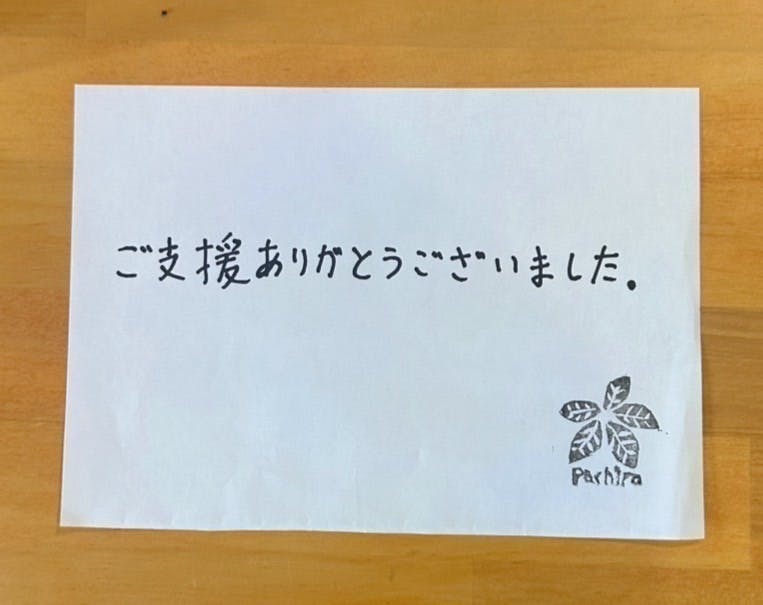 ご支援ありがとうございました。
Pachira